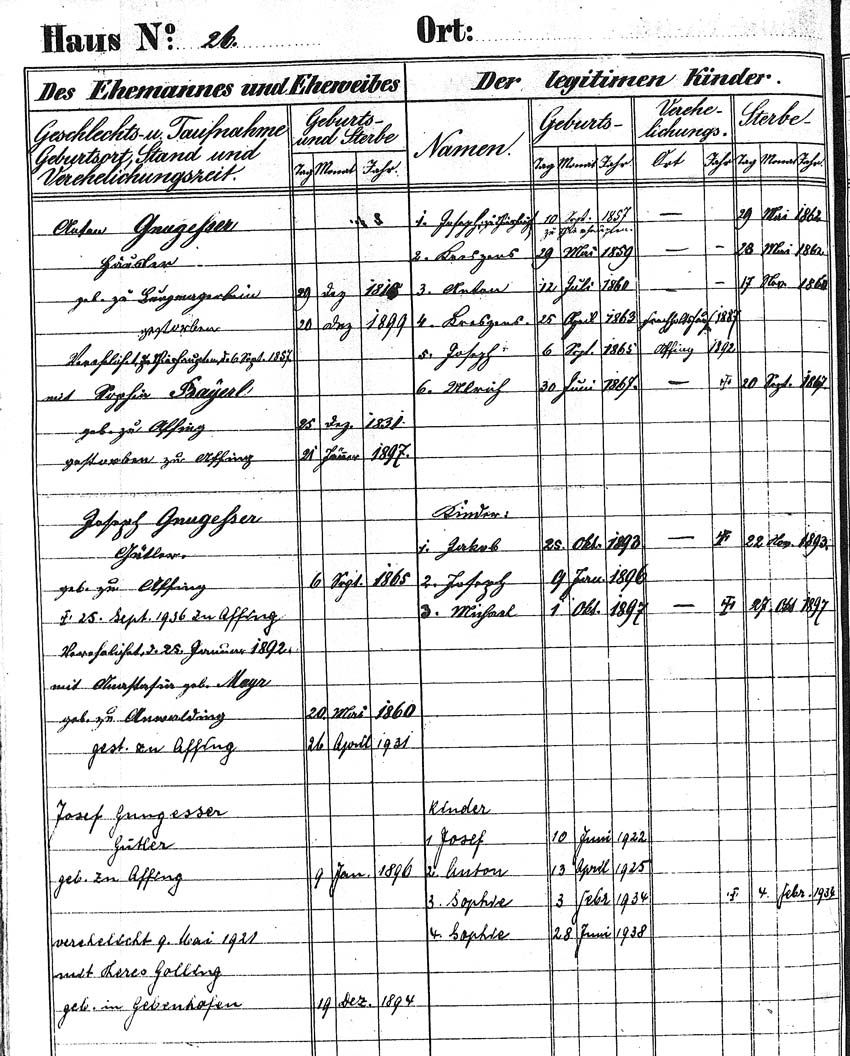 Haus No: 26. Ort:
Des Ehemannes und Eheweibes Der legitimen Kinder.
Geschlechts- u. Taufnahme Geburtsort, Stand und Verehelichungszeit. Geburts- und Sterbe Namen. Geburts- Verehe-lichungs. Sterbe-
Tag Monat Jahr. Tag Monat Jahr. Ort Jahr Tag Monat Jahr.
Anton Gnugesser 1. Joseph 10 Sept. 1857 — 29 Mai 1862
Häusler 2. Kreszens 29 Mai 1859 — - 28 Mai 1862.
geb. zu 29 Dez 3. Anton 12 Juli 1860 — - 17 Nov. 1860
gestorben 20 Dez 1899 4. Kreszens. 25 April 1863 1887
Verehlicht d. 6 Sept. 1857 5. Joseph 6 Sept. 1865 Affing 1892
mit Sophia Bayerl 6. Ulrich 30 Juni 1867. — † 20 Sept. 1867
geb. zu Affing 25 Dez. 1831.
gestorben zu Affing 21 Jäner 1897.
Joseph Gnugesser Kinder:
Gütler. 1. Jakob 25. Okt. 1893 — † 22 Nov. 1893.
geb. zu Affing 6 Sept. 1865 2. Joseph 9 Jan. 1896
†. 25. Sept. 1936 zu Affing 3. Michael 1 Okt. 1897 — † 27. Okt 1897
Verehelicht, d. 25. Januar 1892.
mit Anastasia geb. Mayr
geb. zu Anwalding 20. Mai 1860
gest. zu Affing 26 April 1931
Josef Gnugesser Kinder
Gütler 1 Josef 10 Juni 1922
geb. zu Affing 9 Jan. 1896 2. Anton 13 April 1925
3. Sophie 3 Febr 1934 † 4. Febr. 1934
verehelicht 9. Mai 1921 4. Sophie 28 Juni 1938
mit Theres Golling
geb. in Gebenhofen 19 Dez. 1894